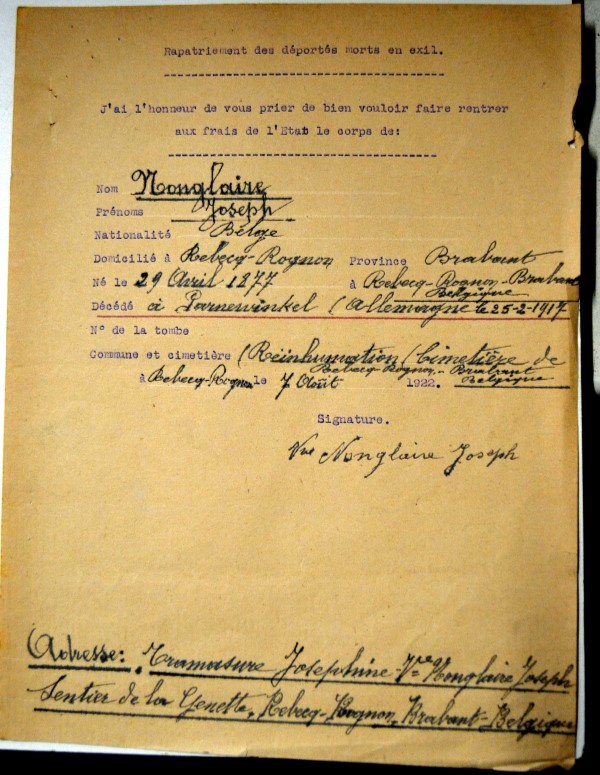 Rapatriement des déportés morts en exil.
J'ai l'honneur de vous prier de bien vouloir faire rentrer
aux frais de l'Etat le corps de:
Nom Nonglaire
Prénoms Joseph
Nationalité Belge
Domicilié à Rebecq-Rognon Province Brabant
Né le 29 Avril 1877 à Rebecq-Rognon-Brabant
Belgique
Décédé à Parnewinkel (Allemagne le 25-2-1917
N° de la tombe
Commune et cimetière (Réinhumation (Cimetière de
Rebecq-Rognon-Brabant
Belgique
à Rebecq-Rognon le 7 Août 1922.
Signature.
Vve Nonglaire Joseph
Adresse: Tramasure Joséphine-Vve Nonglaire Joseph
Sentier de la Genette, Rebecq-Rognon, Brabant-Belgique